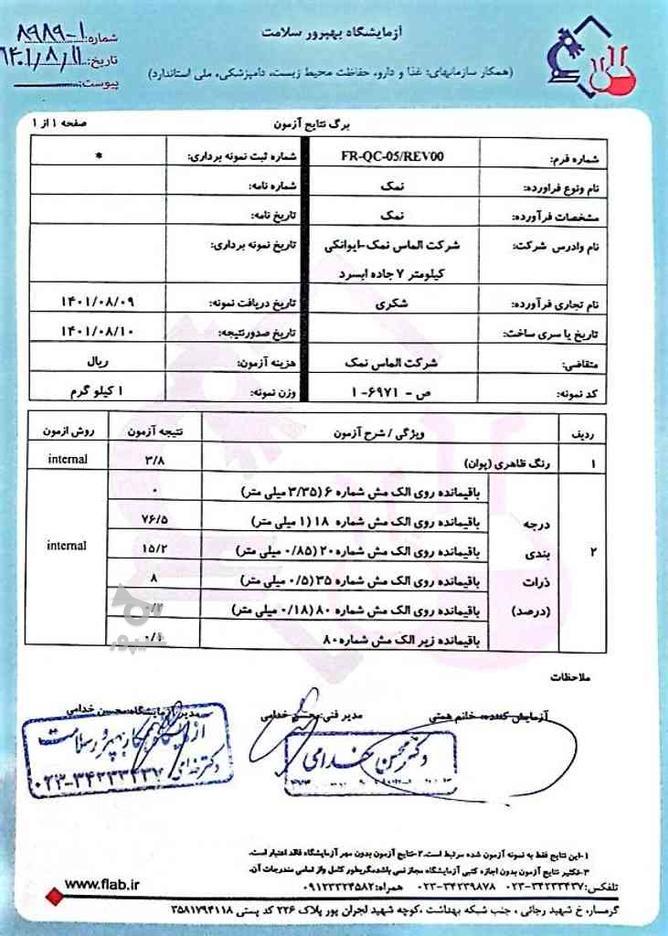 آزمایشگاه بهپرور سلامت
(همکار سازمانهای: غذا و دارو، حفاظت محیط زیست، دامپزشکی، ملی استاندارد)
شماره: ۸۹۸۹-۱
تاریخ: ۱۴۰۱/۸/۱۱
پیوست:
برگ نتایج آزمون
صفحه ۱ از ۱
شماره فرم: FR-QC-05/REV00 شماره ثبت نمونه برداری: *
نام ونوع فراورده: نمک شماره نامه:
مشخصات فرآورده: نمک تاریخ نامه:
نام وادرس شرکت: شرکت الماس نمک-ایوانکی تاریخ نمونه برداری:
کیلومتر ۷ جاده ابسرد
نام تجاری فرآورده: شکری تاریخ دریافت نمونه: ۱۴۰۱/۰۸/۰۹
تاریخ یا سری ساخت: تاریخ صدورنتیجه: ۱۴۰۱/۰۸/۱۰
متقاضی: شرکت الماس نمک هزینه آزمون: ریال
کد نمونه: ص - ۶۹۷۱-۱ وزن نمونه: ۱ کیلو گرم
ردیف ویژگی / شرح آزمون نتیجه آزمون روش ازمون
۱ رنگ ظاهری (یوان) ۳/۸ internal
۲ درجه بندی ذرات (درصد) internal
باقیمانده روی الک مش شماره ۶ (۳/۳۵ میلی متر) ۰
باقیمانده روی الک مش شماره ۱۸ (۱ میلی متر) ۷۶/۵
باقیمانده روی الک مش شماره ۲۰ (۰/۸۵ میلی متر) ۱۵/۲
باقیمانده روی الک مش شماره ۳۵ (۰/۵ میلی متر) ۸
باقیمانده روی الک مش شماره ۸۰ (۰/۱۸ میلی متر) ۰/۲
باقیمانده زیر الک مش شماره ۸۰ ۰/۱
ملاحظات
آزمایش کننده: خانم همتی مدیر فنی: محسن خدامی مدیر آزمایشگاه: محسن خدامی
دکتر محسن خدامی
آزمایشگاه همکار بهپرور سلامت
دکتر خدامی
۰۲۳-۳۴۲۳۳۴۳۷
۱-این نتایج فقط به نمونه آزمون شده مرتبط است.۲-نتایج آزمون بدون مهر آزمایشگاه فاقد اعتبار است.
۳-تکثیر نتایج آزمون بدون اجازه کتبی آزمایشگاه مجاز نمی باشد،مگربطور کامل واز تمامی مندرجات آن.
تلفکس: ۰۲۳-۳۴۲۳۳۴۳۷ ۰۲۳-۳۴۲۳۹۸۷۸ همراه: ۰۹۱۲۳۳۲۴۵۸۲
www.flab.ir
گرمسار، خ شهید رجائی ، جنب شبکه بهداشت ،کوچه شهید لجران پور پلاک ۲۲۶ کد پستی ۳۵۸۱۷۹۴۱۱۸